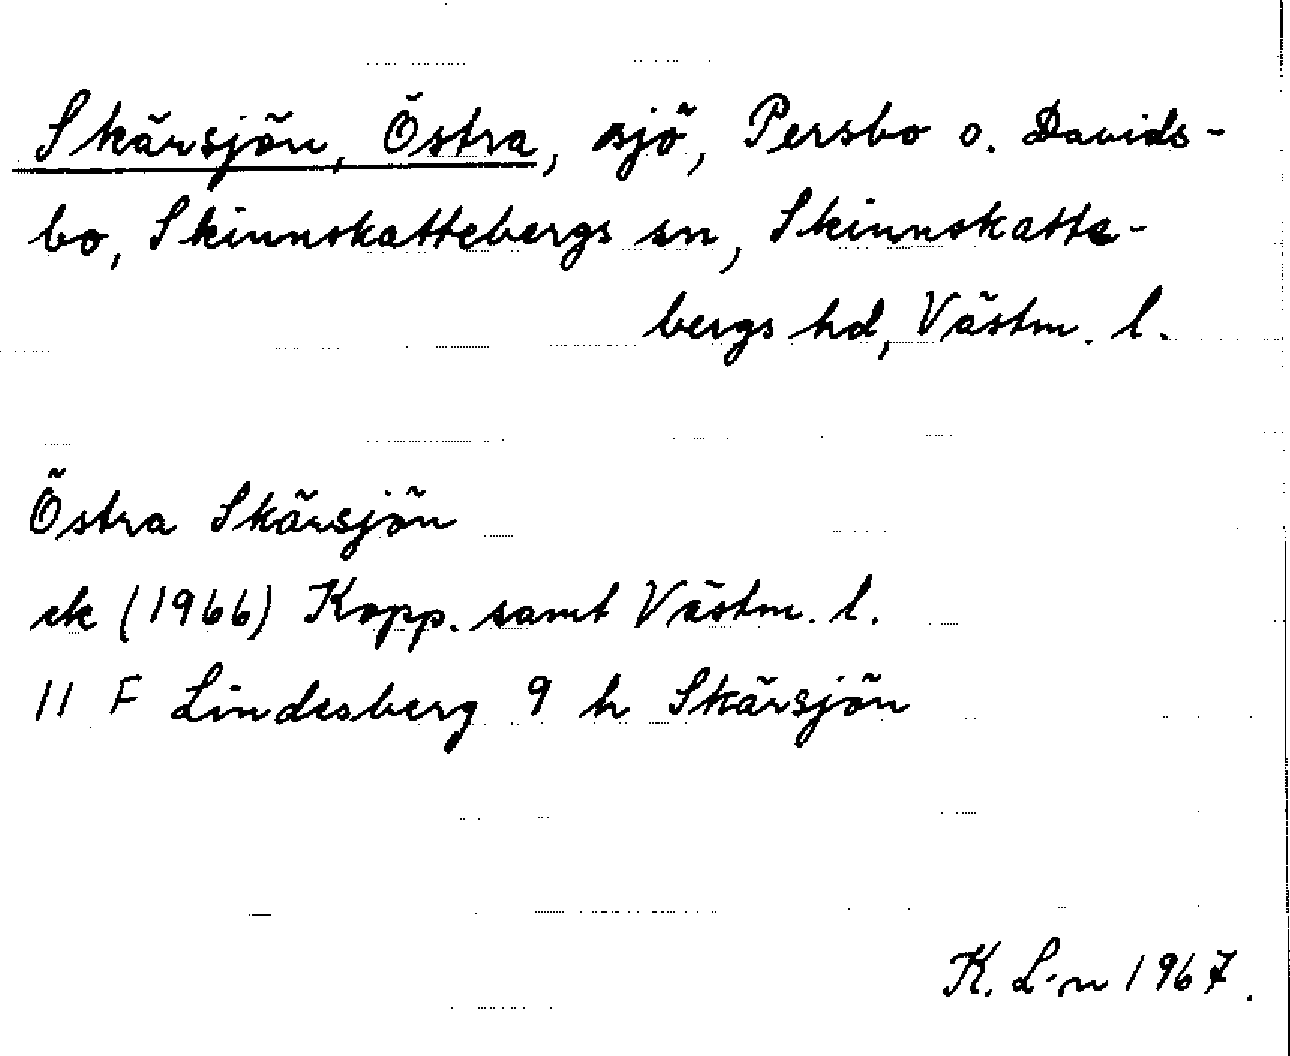 Skärsjön, Östra, sjö, Persbo o. Davids-
bo, Skinnskattebergs sn, Skinnskatte-
bergs hd, Västm. l.
Östra Skärsjön
ek (1966) Kopp. samt Västm. l.
11 F Lindesberg 9 h Skärsjön
K. L-n 1967.